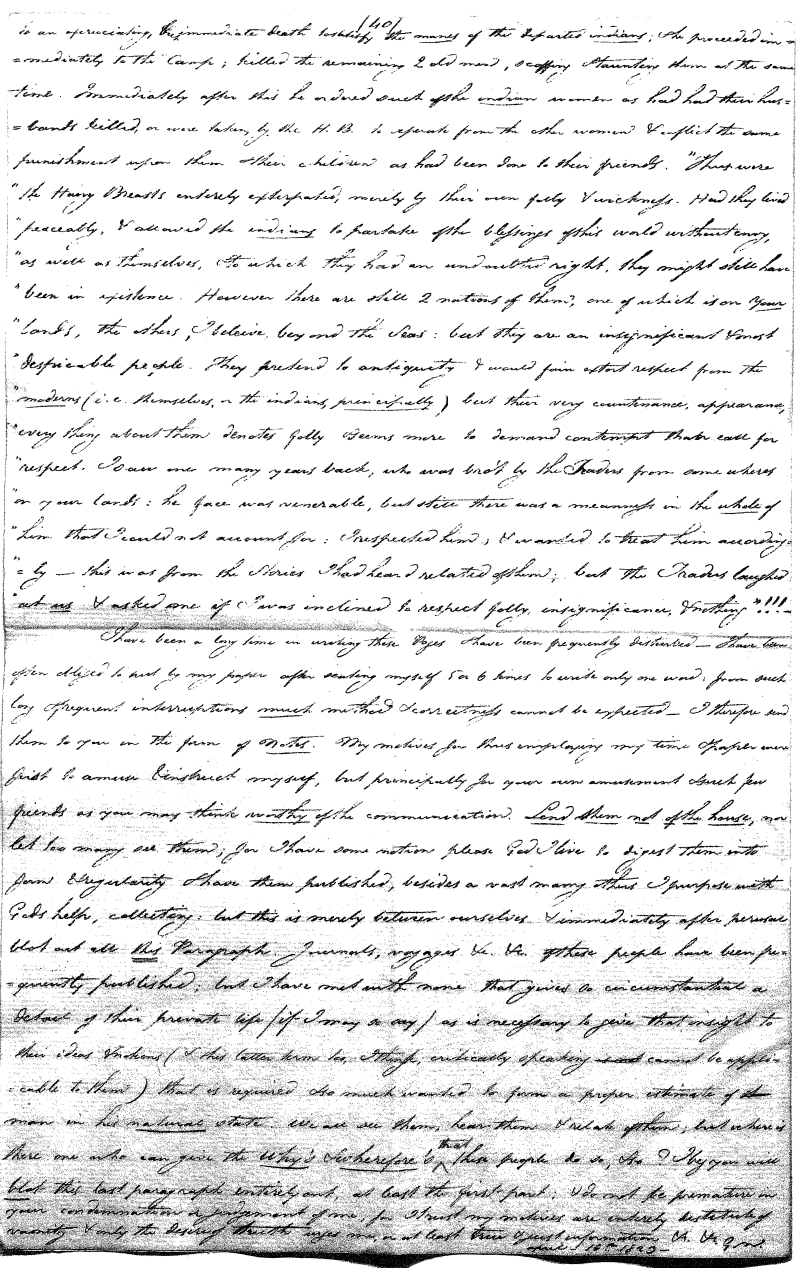 (40)
to an excruciating, & immediate death to satisfy the manes of the departed indians; he proceeded im=
=mediately to the Camp; killed the remaining 2 old men, scoffing & taunting them at the same
time. Immediately after this he ordered such of the indian women as had had their hus=
=bands killed, or were taken by the H. B. to seperate from the other women & inflict the same
punishment upon them & their children as had been done to their friends. "Thus were
"the Hairy Breasts entirely exterpated, merely by their own folly & wickness. Had they lived
"peaceably, & allowed the indians to partake of the blessings of this world without envy,
"as well as themselves, & to which they had an undoubted right, they might still have
"been in existence. However there are still 2 nations of them, one of which is on your
"lands, the others, I beleive, beyond the Seas: but they are an insignificant & most
"despicable people. They pretend to antiquity & would fain extort respect from the
"moderns (i.e. themselves, or the indians, principally) but their very countenance, appearance,
"every thing about them denotes folly & seems more to demand contempt than call for
"respect. I saw one many years back, who was bro't by the Traders from some wheres
"on your lands: he face was venerable, but still there was a meanness in the whole of
"him that I could not account for: I respected him, & wanted to treat him according=
"=ly — this was from the Stories I had heard related of them; but the Traders laughed
"at us & asked me if I was inclined to respect folly, insignificance, & nothing"!!!—
I have been a long time in writing these Pages & have been frequently disturbed — I have been
often obliged to put by my paper after seating myself 5 or 6 times to write only one word: from such
long & frequent interruptions much method & correctness cannot be expected — I therefore send
them to you in the form of Notes. My motives for thus employing my time & paper were
first to amuse & instruct myself, but principally for your own amusement & such few
friends as you may think worthy of the communication. Lend them not of the house, nor
let too many see them; for I have some notion please God I live to digest them into
form & regularity & have them published, besides a vast many others I purpose with
Gods help, collecting: but this is merely between ourselves & immediately after perusal
blot out all this Paragraph. Journals, voyages &c. &c. of these people have been fre=
=quently published; but I have met with none that gives so circumstantial a
detail of their private life (if I may so say) as is necessary to give that insight to
their ideas & notions (& this latter term too, I think, critically speaking cannot be appli=
=cable to them) that is required & so much wanted to form a proper estimate of
man in his natural state. We all see them, hear them & relate of them; but where is
there one who can give the Why's & wherefore's that these people do so, & so? I beg you will
blot this last paragraph entirely out, at least the first part; & do not be premature in
your condemnation or judgement of me, for I trust my motives are entirely destitute of
vanity & only the desire of truth urges me, or at least true & just information &c. &c. G.N.
april 16th 1823—